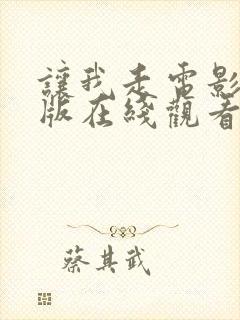 讓我走電影
版在綫觀看
蔡其武